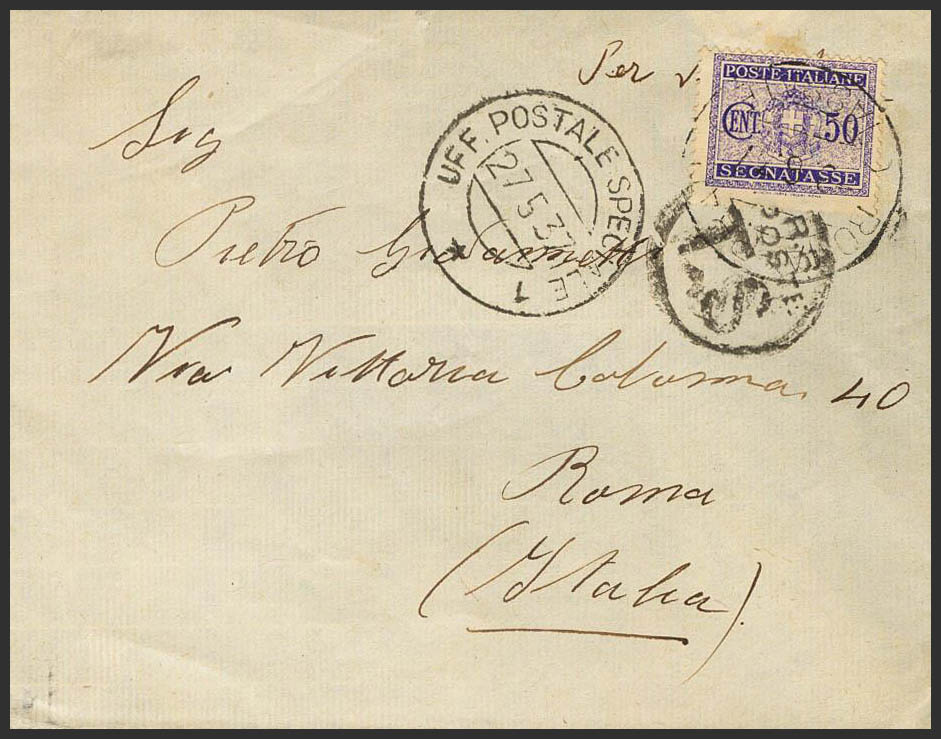 Per
Sig
Pietro
Via Vittoria Colonna, 40
Roma
(Italia).
UFF. POSTALE SPECIALE 1
27.5.37
POSTE ITALIANE
CENT. 50
SEGNATASSE
T